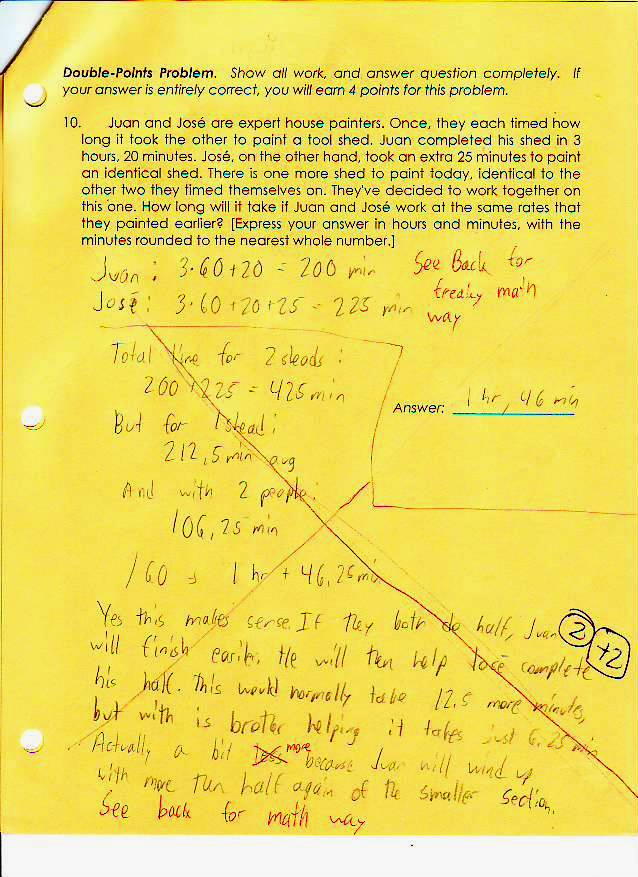 Double-Points Problem. Show all work, and answer question completely. If
your answer is entirely correct, you will earn 4 points for this problem.
10. Juan and José are expert house painters. Once, they each timed how
long it took the other to paint a tool shed. Juan completed his shed in 3
hours, 20 minutes. José, on the other hand, took an extra 25 minutes to paint
an identical shed. There is one more shed to paint today, identical to the
other two they timed themselves on. They've decided to work together on
this one. How long will it take if Juan and José work at the same rates that
they painted earlier? [Express your answer in hours and minutes, with the
minutes rounded to the nearest whole number.]
Juan: 3·60+20 = 200 min
See Back for
freaky math
way
José: 3·60+20+25 = 225 min
Total time for 2 sleads:
200+225 = 425 min
Answer: 1 hr, 46 min
But for 1 slead:
212,5 min avg
And with 2 people:
106,25 min
/60 → 1 hr + 46,25 min
Yes this makes sense. If they both do half, Juan
will finish earlier. He will then help José complete
his half. This would normally take 12.5 more minutes,
but with is broter helping it takes just 6.25 min
Actually a bit less more because Juan will wind up
with more tun half again of the smaller section.
See back for math way
2
+2